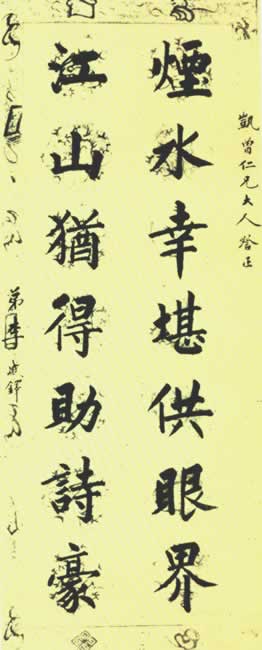 凱曾仁兄大人啓正
煙水幸堪供眼界
江山猶得助詩豪
弟李